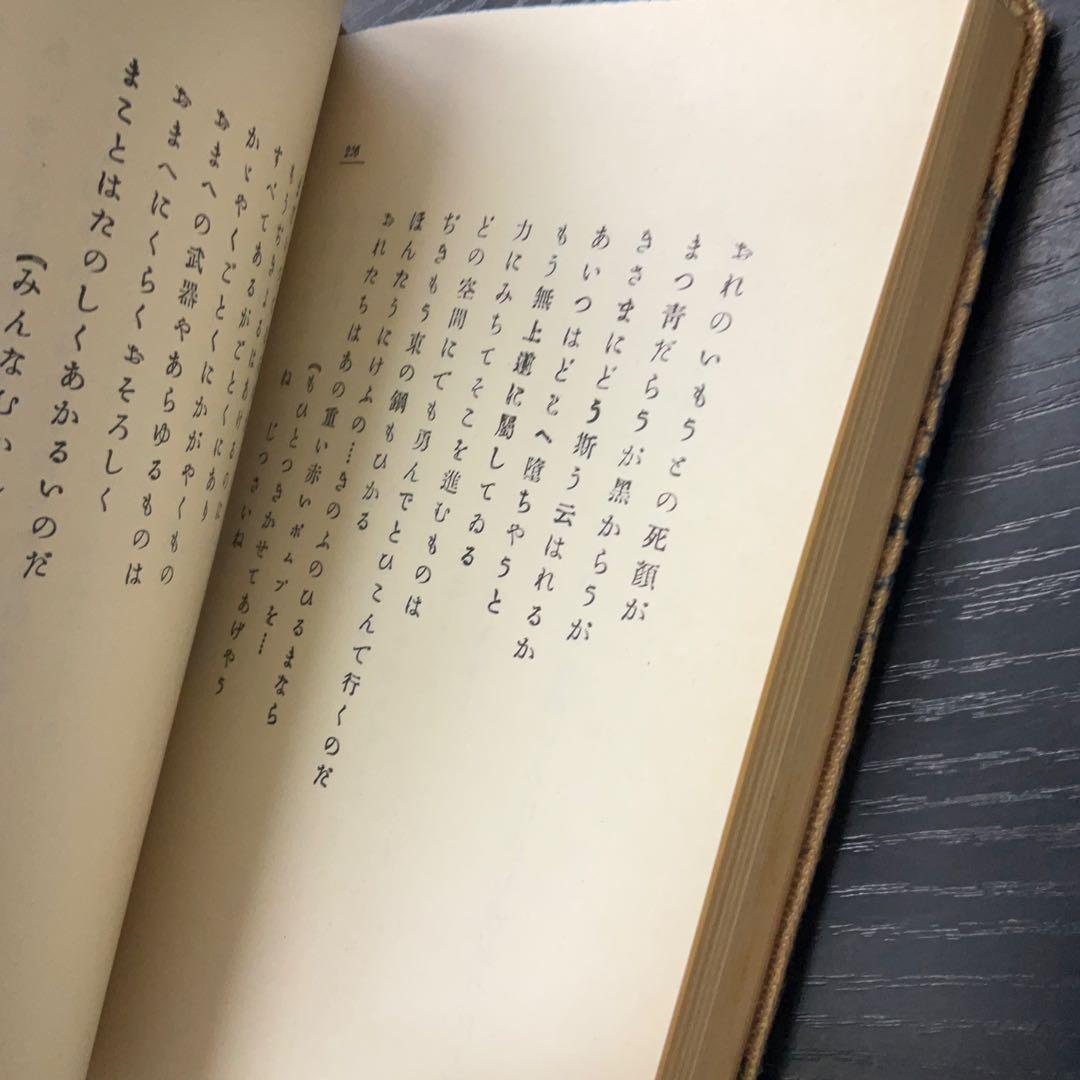 226
おれのいもうとの死顔が
まつ青だらうが黒からうが
きさまにどう斯う云はれるか
あいつはどこへ堕ちやうと
もう無上道に屬してゐる
力にみちてそこを進むものは
どの空間にでも勇んでとびこんで行くのだ
ぢきもう東の鋼もひかる
ほんたうにけふの…きのふのひるまなら
おれたちはあの重い赤いポムプを…
(もひとつきかせてあげやう
ね じつさいね
すべてあるがごとくにあり
かゞやくごとくにかがやくもの
おまへの武器やあらゆるものは
おまへにくらくおそろしく
まことはたのしくあかるいのだ
(みんなむか